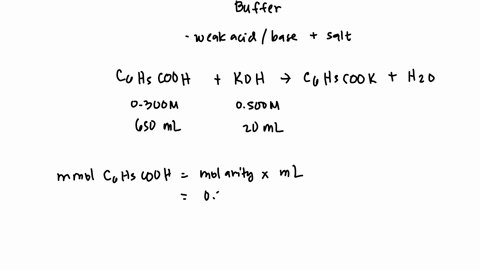 Buffer
- weak acid / base + salt
C6H5COOH + KOH → C6H5COOK + H2O
0.300M 0.500M
650 mL 20 mL
mmol C6H5COOH = molarity x mL
= 0.